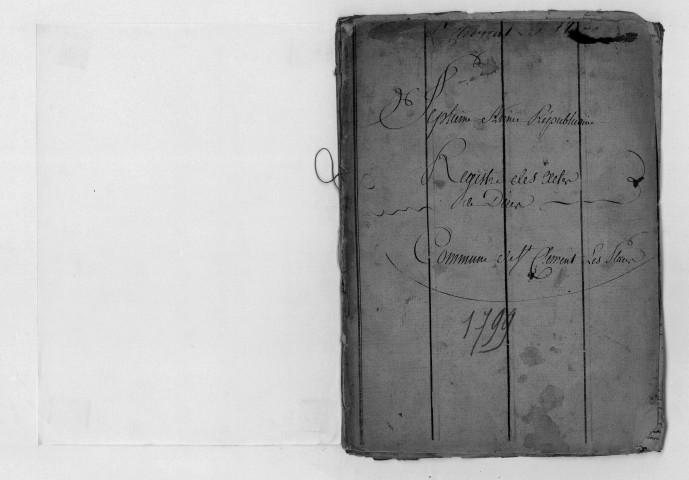 Septieme Année Républicaine
Registre des Actes
de Décès
Commune de St Clement Les
1799